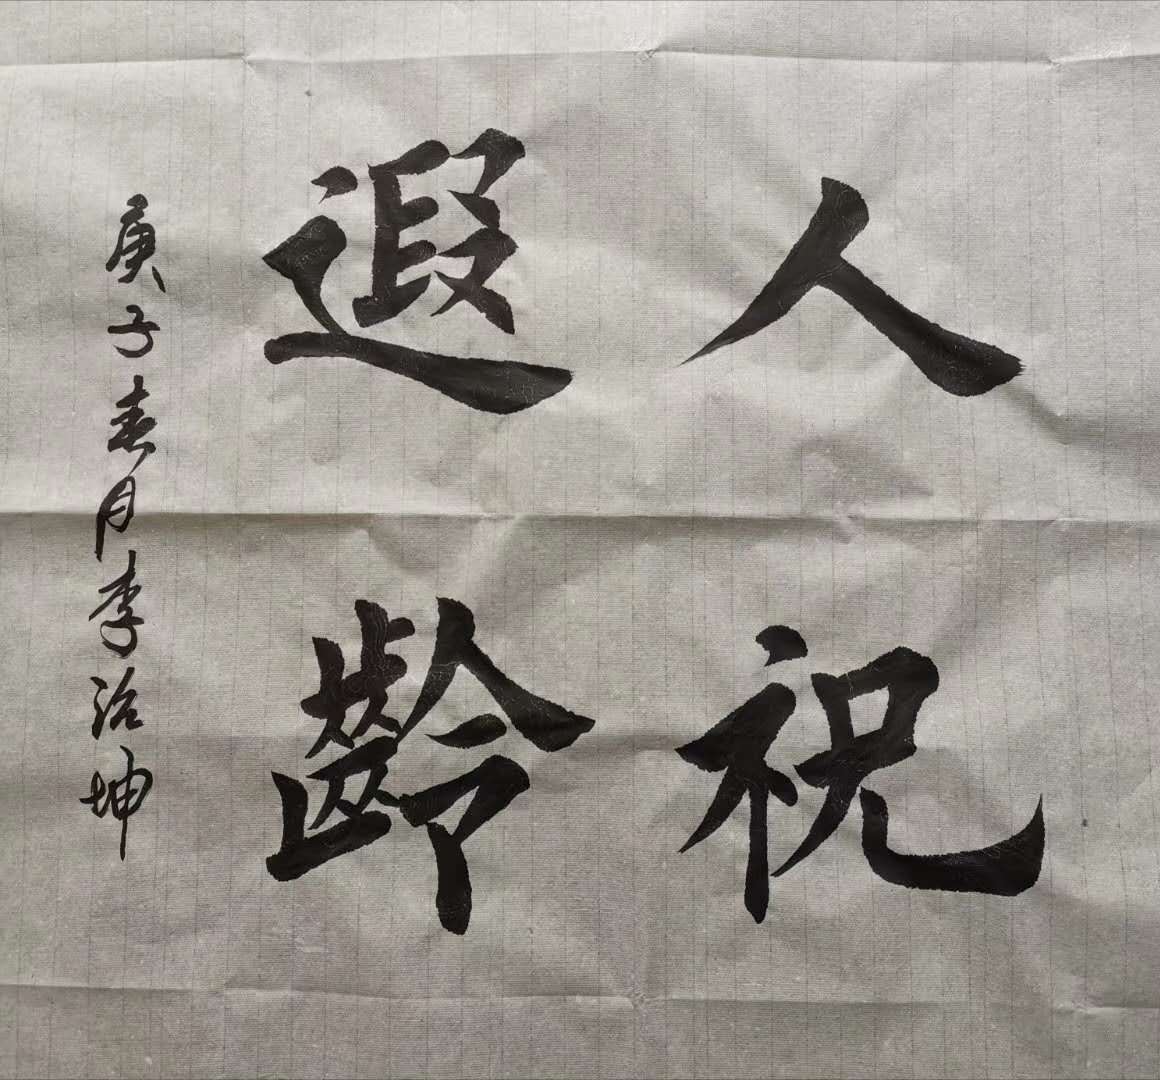 人祝
遐齡
庚子春月李治坤